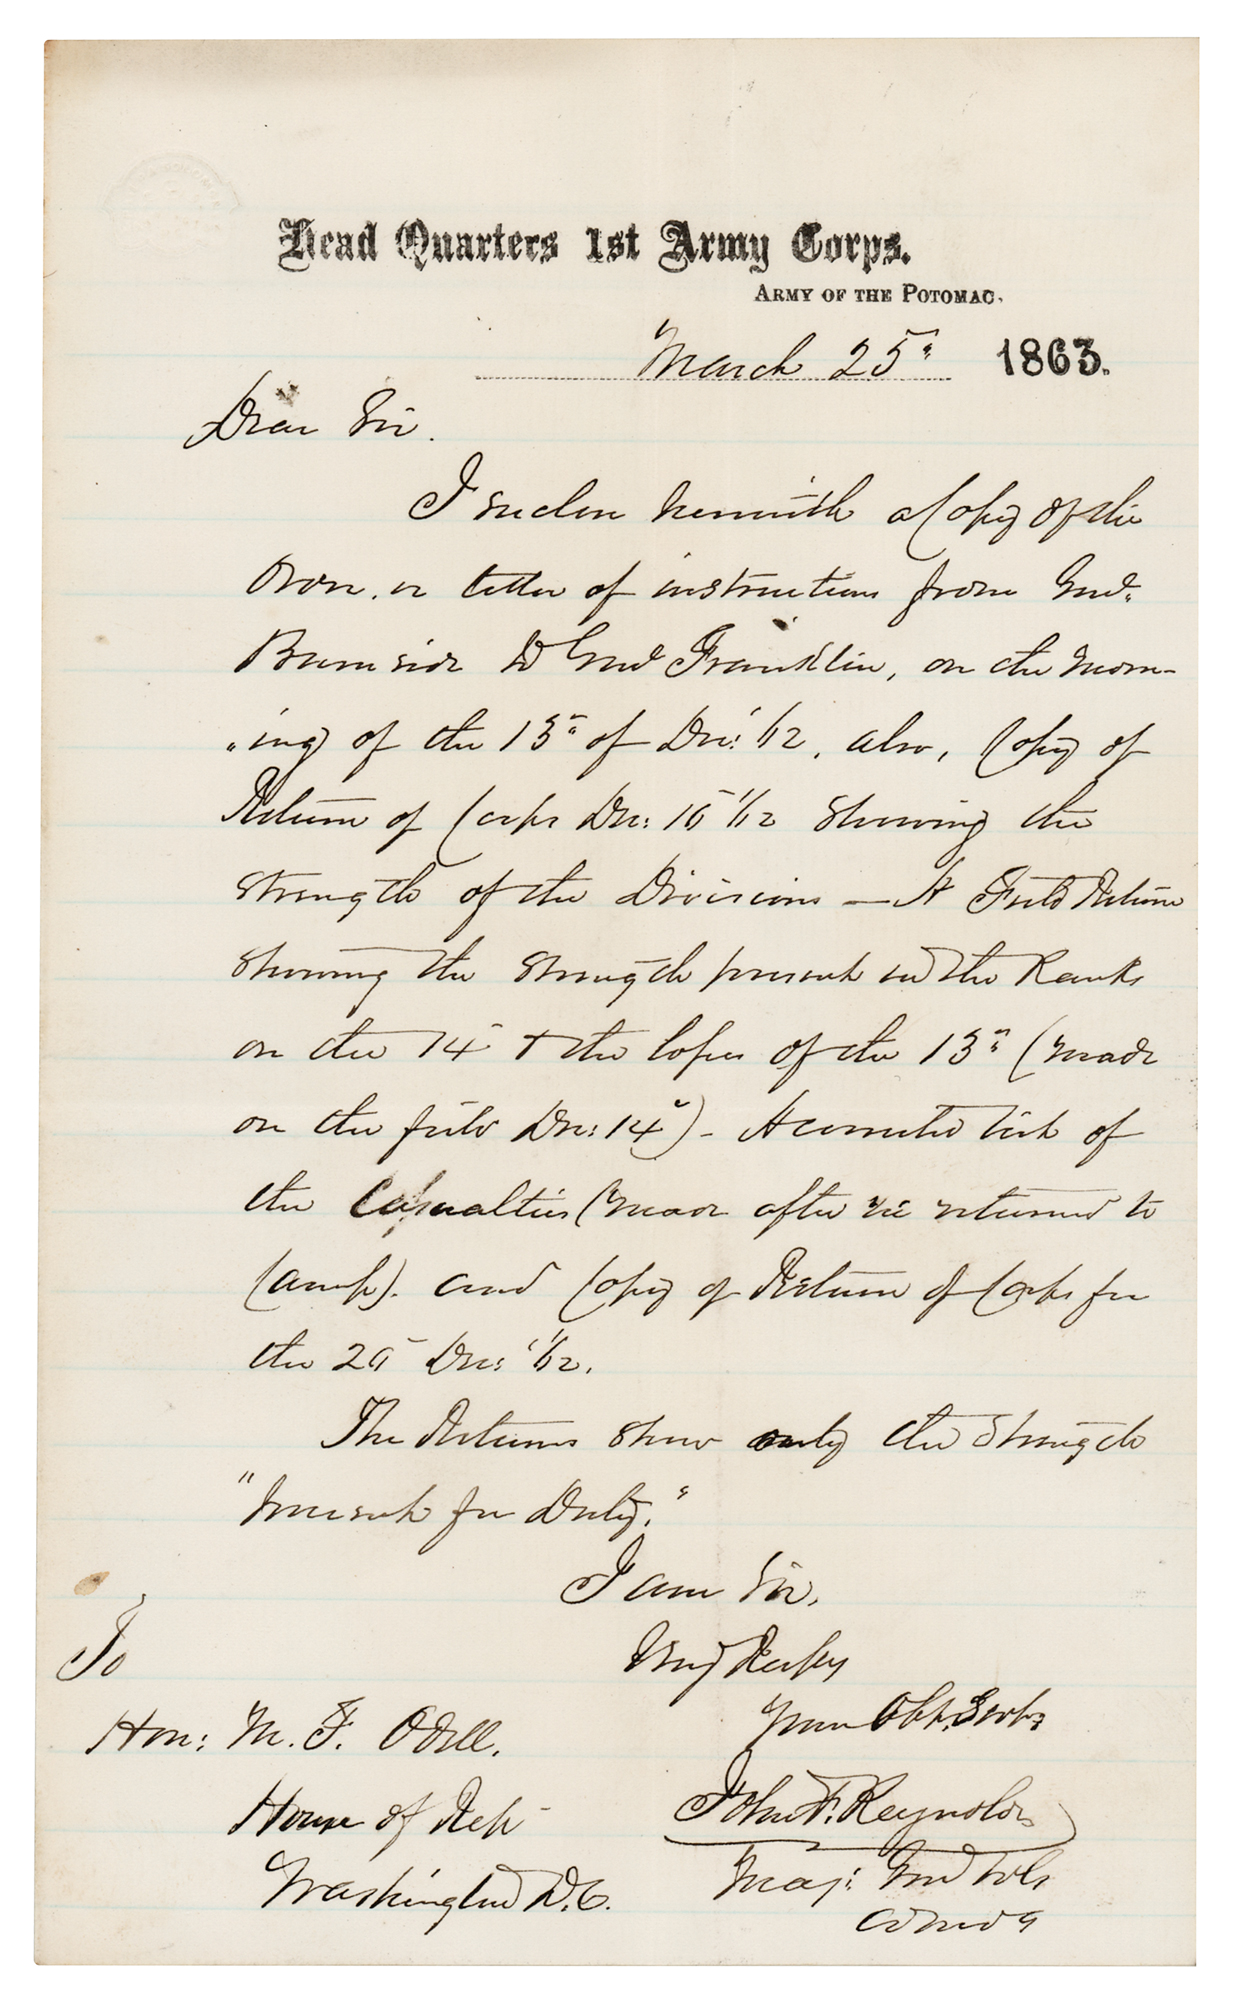 Head Quarters 1st Army Corps.
Army of the Potomac,
March 25" 1863.
Dear Sir.
I enclose herewith a Copy of the
Order, or letter of instructions from Genl.
Burnside to Genl Franklin, on the morn-
"ing of the 13" of Dec: '62, also, Copy of
Return of Corps Dec: '62 showing the
strength of the Divisions — A Field Return
showing the strength present in the Ranks
on the 14" & the losses of the 13" (made
on the field Dec: 14") - A corrected list of
the Casualties (made after we returned to
Camp). and Copy of Return of Corps for
the Dec: '62.
The Returns show only the strength
"present for Duty."
I am Sir,
Very Respy
Your Obt. Servt
John F. Reynolds
Maj: Genl Vols
Comdg
To
Hon: M. F. Odell.
House of Rep
Washington D.C.